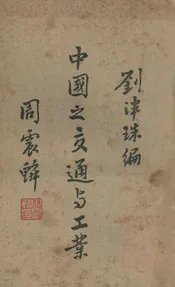 劉沣珠編
中國之交通与工業
周震鱗